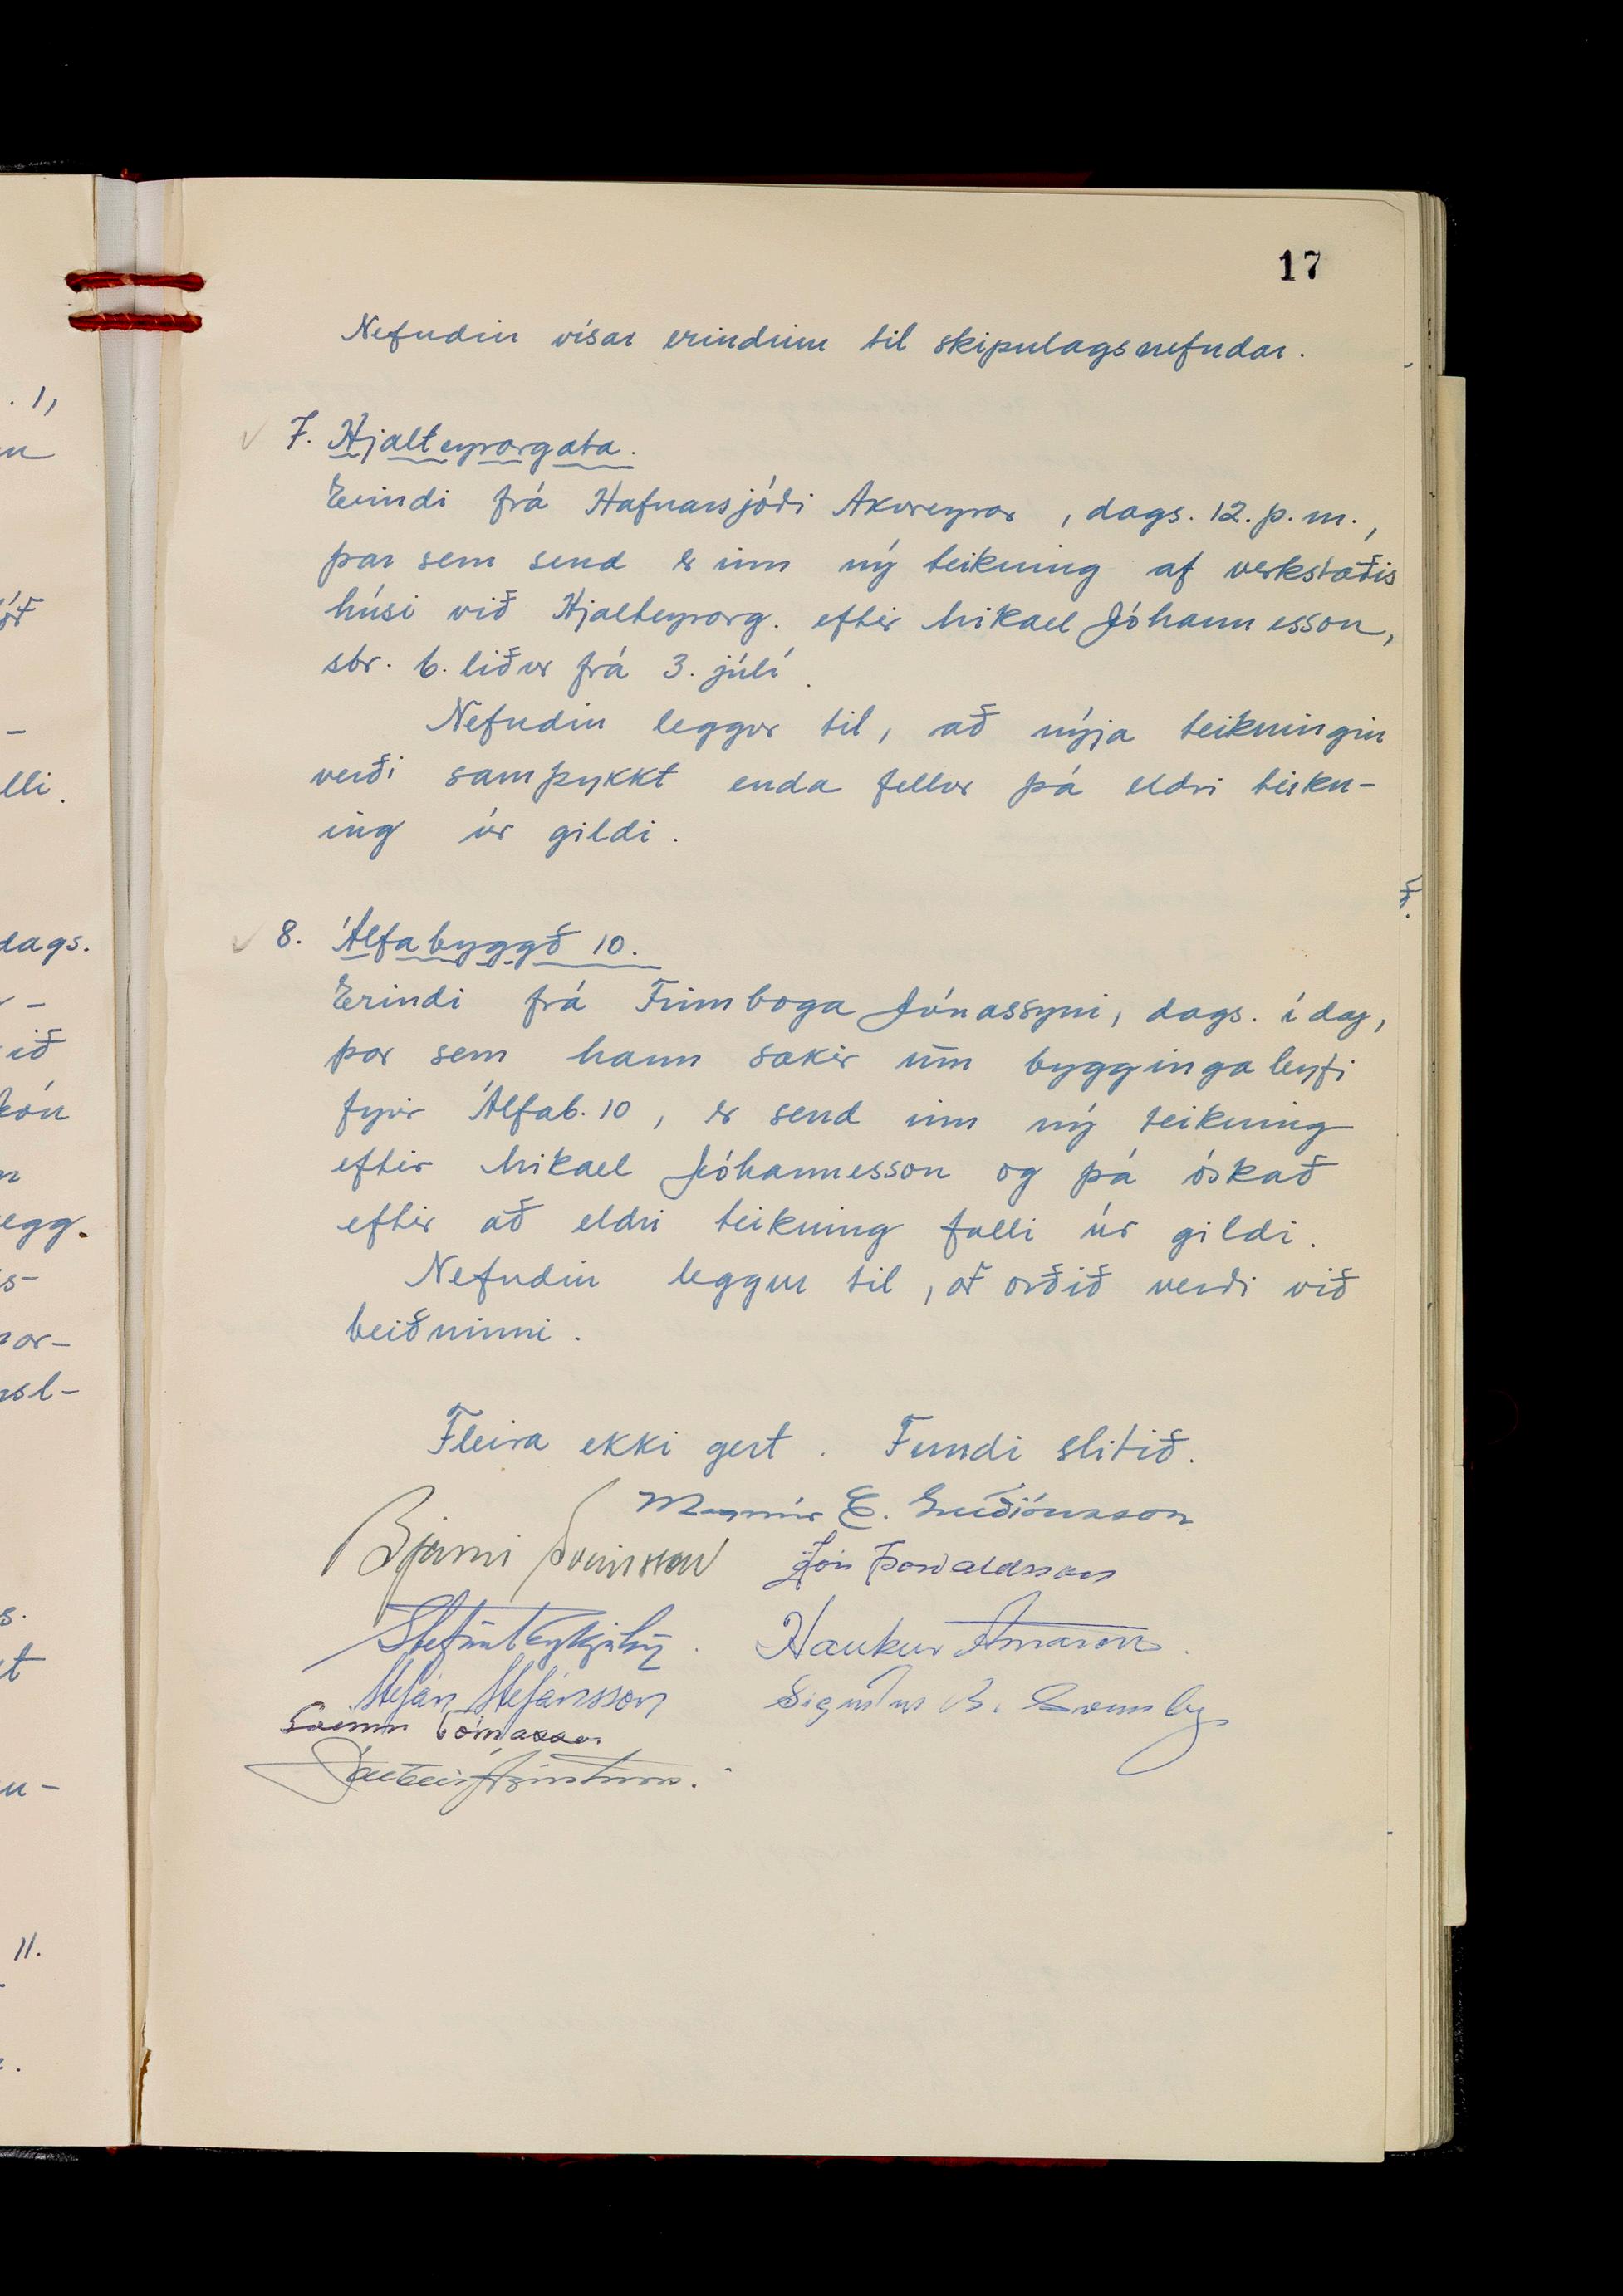 17
Nefndin vísar erindinu til skipulagsnefndar.
7. Hjalteyrargata.
Erindi frá Hafnarsjóði Akureyrar, dags. 12. þ. m.,
þar sem send er inn ný teikning af verkstæðis
húsi við Hjalteyrarg. eftir Mikael Jóhannesson,
sbr. 6. liður frá 3. júlí.
Nefndin leggur til, að nýja teikningin
verði samþykkt enda fellur þá eldri teikn-
ing úr gildi.
8. Álfabyggð 10.
Erindi frá Finnboga Jónassyni, dags. í dag,
þar sem hann sækir um byggingaleyfi
fyrir Álfab. 10, er send inn ný teikning
eftir Mikael Jóhannesson og þá óskað
eftir að eldri teikning falli úr gildi.
Nefndin leggur til, að orðið verði við
beiðninni.
Fleira ekki gert. Fundi slitið.
Magnús E. Guðjónsson
Bjarni Sveinsson Jón Þorvaldsson
Stefán Reykjalín. Haukur Árnason.
Stefán Stefánsson
Sveinn Tómasson
dags.
ið
egg.
lli.
11.